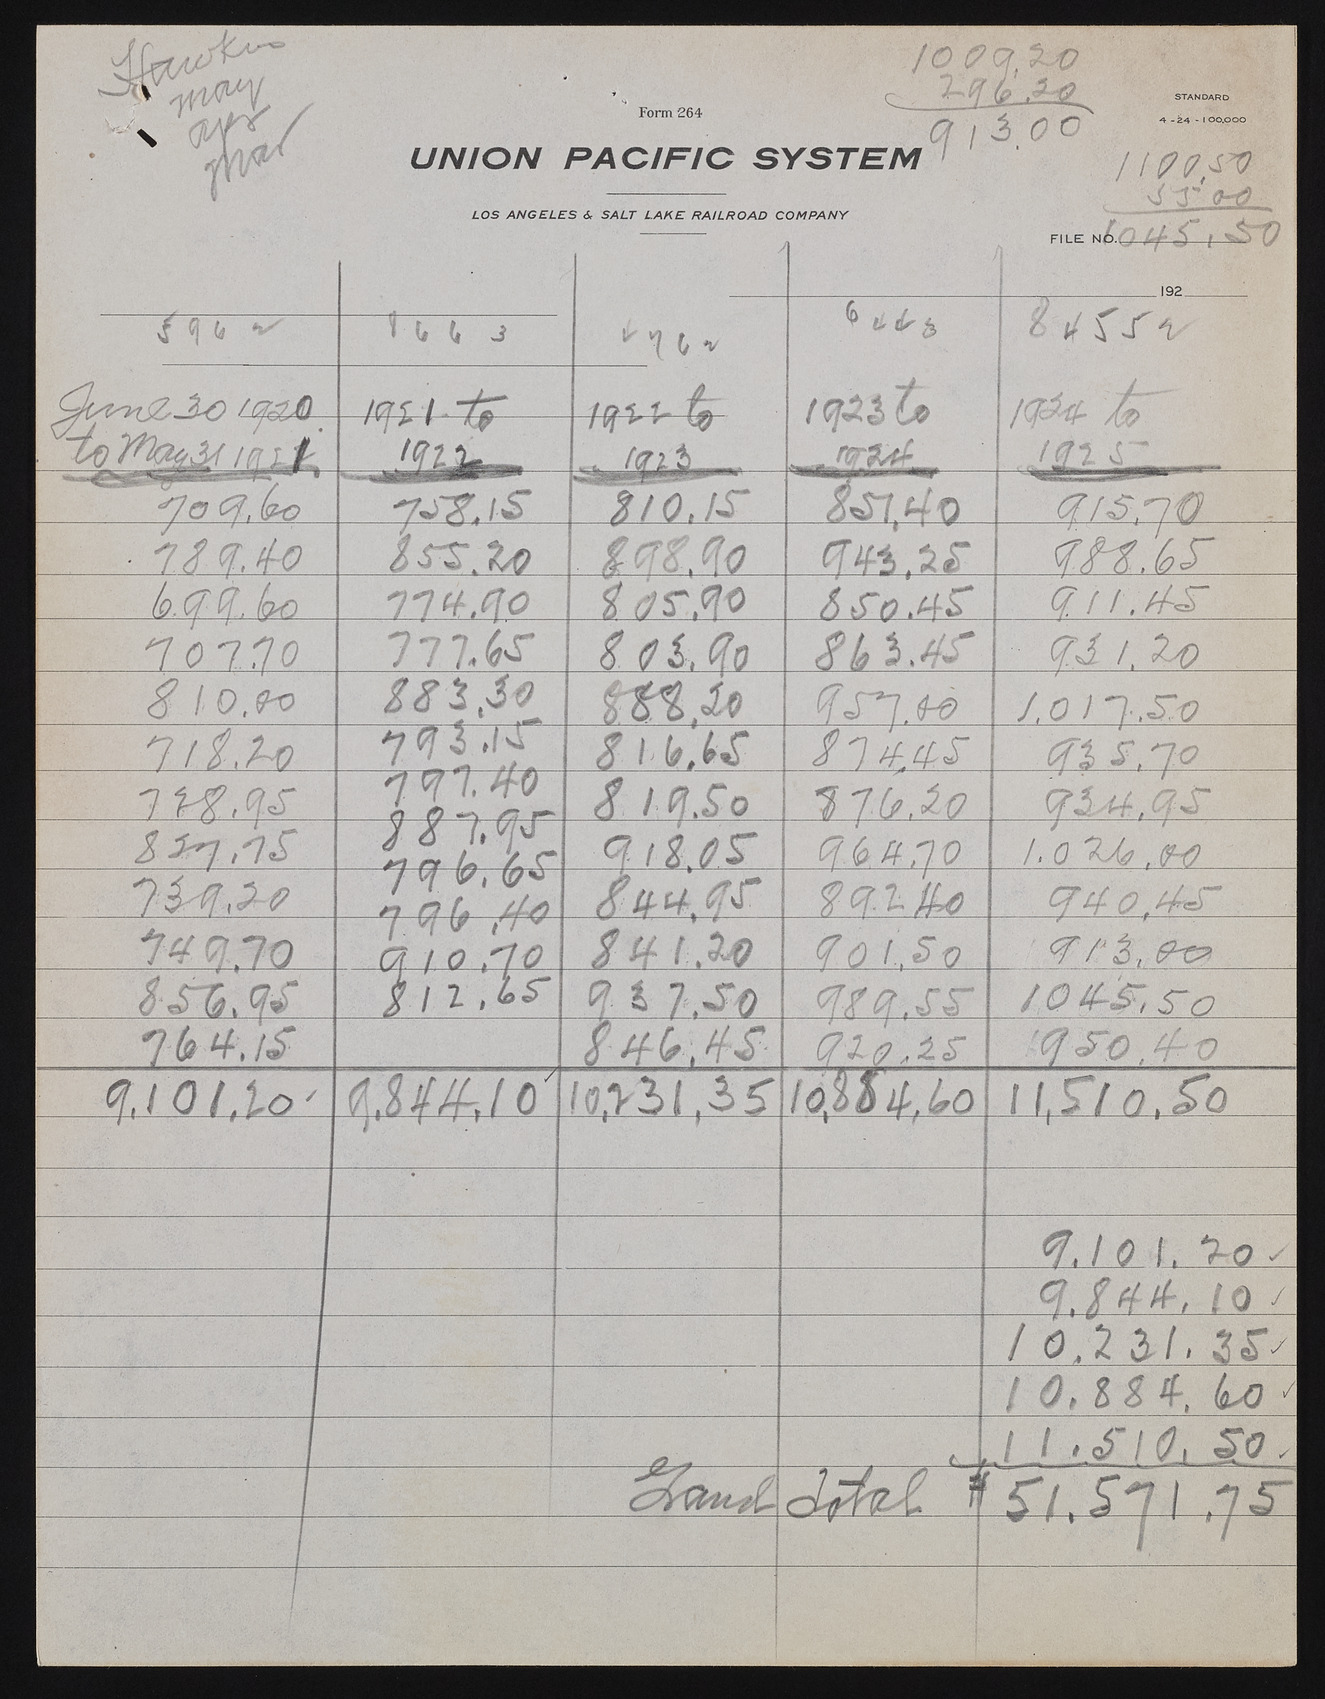 Hawkins
may
apr
mar
1009.20
296.20
913.00
STANDARD
4-24-100,000
Form 264
UNION PACIFIC SYSTEM
LOS ANGELES & SALT LAKE RAILROAD COMPANY
1100.50
55.00
FILE NO. 1045.50
192
8 4 5 5 2
June 30 1920 1921 to 1922 to 1923 to 1924 to
to May 31 1921 1922 1923 1924 1925
709.60 758.15 810.15 851.40 915.70
789.40 855.20 898.90 943.25 988.65
699.60 774.90 805.90 850.45 911.45
707.70 777.65 803.90 863.45 931.20
810.00 883.30 888.20 957.00 1.017.50
718.20 793.15 816.65 874.45 935.70
728.95 797.40 819.50 876.20 934.95
827.75 887.95 918.05 964.70 1.026.00
739.20 796.65 844.95 892.40 940.45
749.70 796.40 841.20 901.50 913.00
856.95 910.70 937.50 989.55 1045.50
764.15 812.65 846.45 920.25 950.40
9.101.20 9.844.10 10,231.35 10,884.60 11,510.50
9.101.20
9.844.10
10.231.35
10.884.60
11.510.50
Grand Total $ 51.571.75